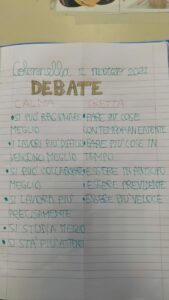 DEBATE
CALMA FRETTA
• SI PUÒ RAGIONARE • FARE PIÙ COSE
MEGLIO CONTEMPORANEAMENTE
• I LAVORI PIÙ DIFFICILI • FARE PIÙ COSE IN
VENGONO MEGLIO TEMPO
• SI PUÒ COLLABORARE • ESSERE IN ANTICIPO
MEGLIO • ESSERE PREVIDENTE
• SI LAVORA PIÙ • ESSERE PIÙ VELOCE
PRECISAMENTE
• SI STUDIA MEGLIO
• SI STA PIÙ ATTENTI